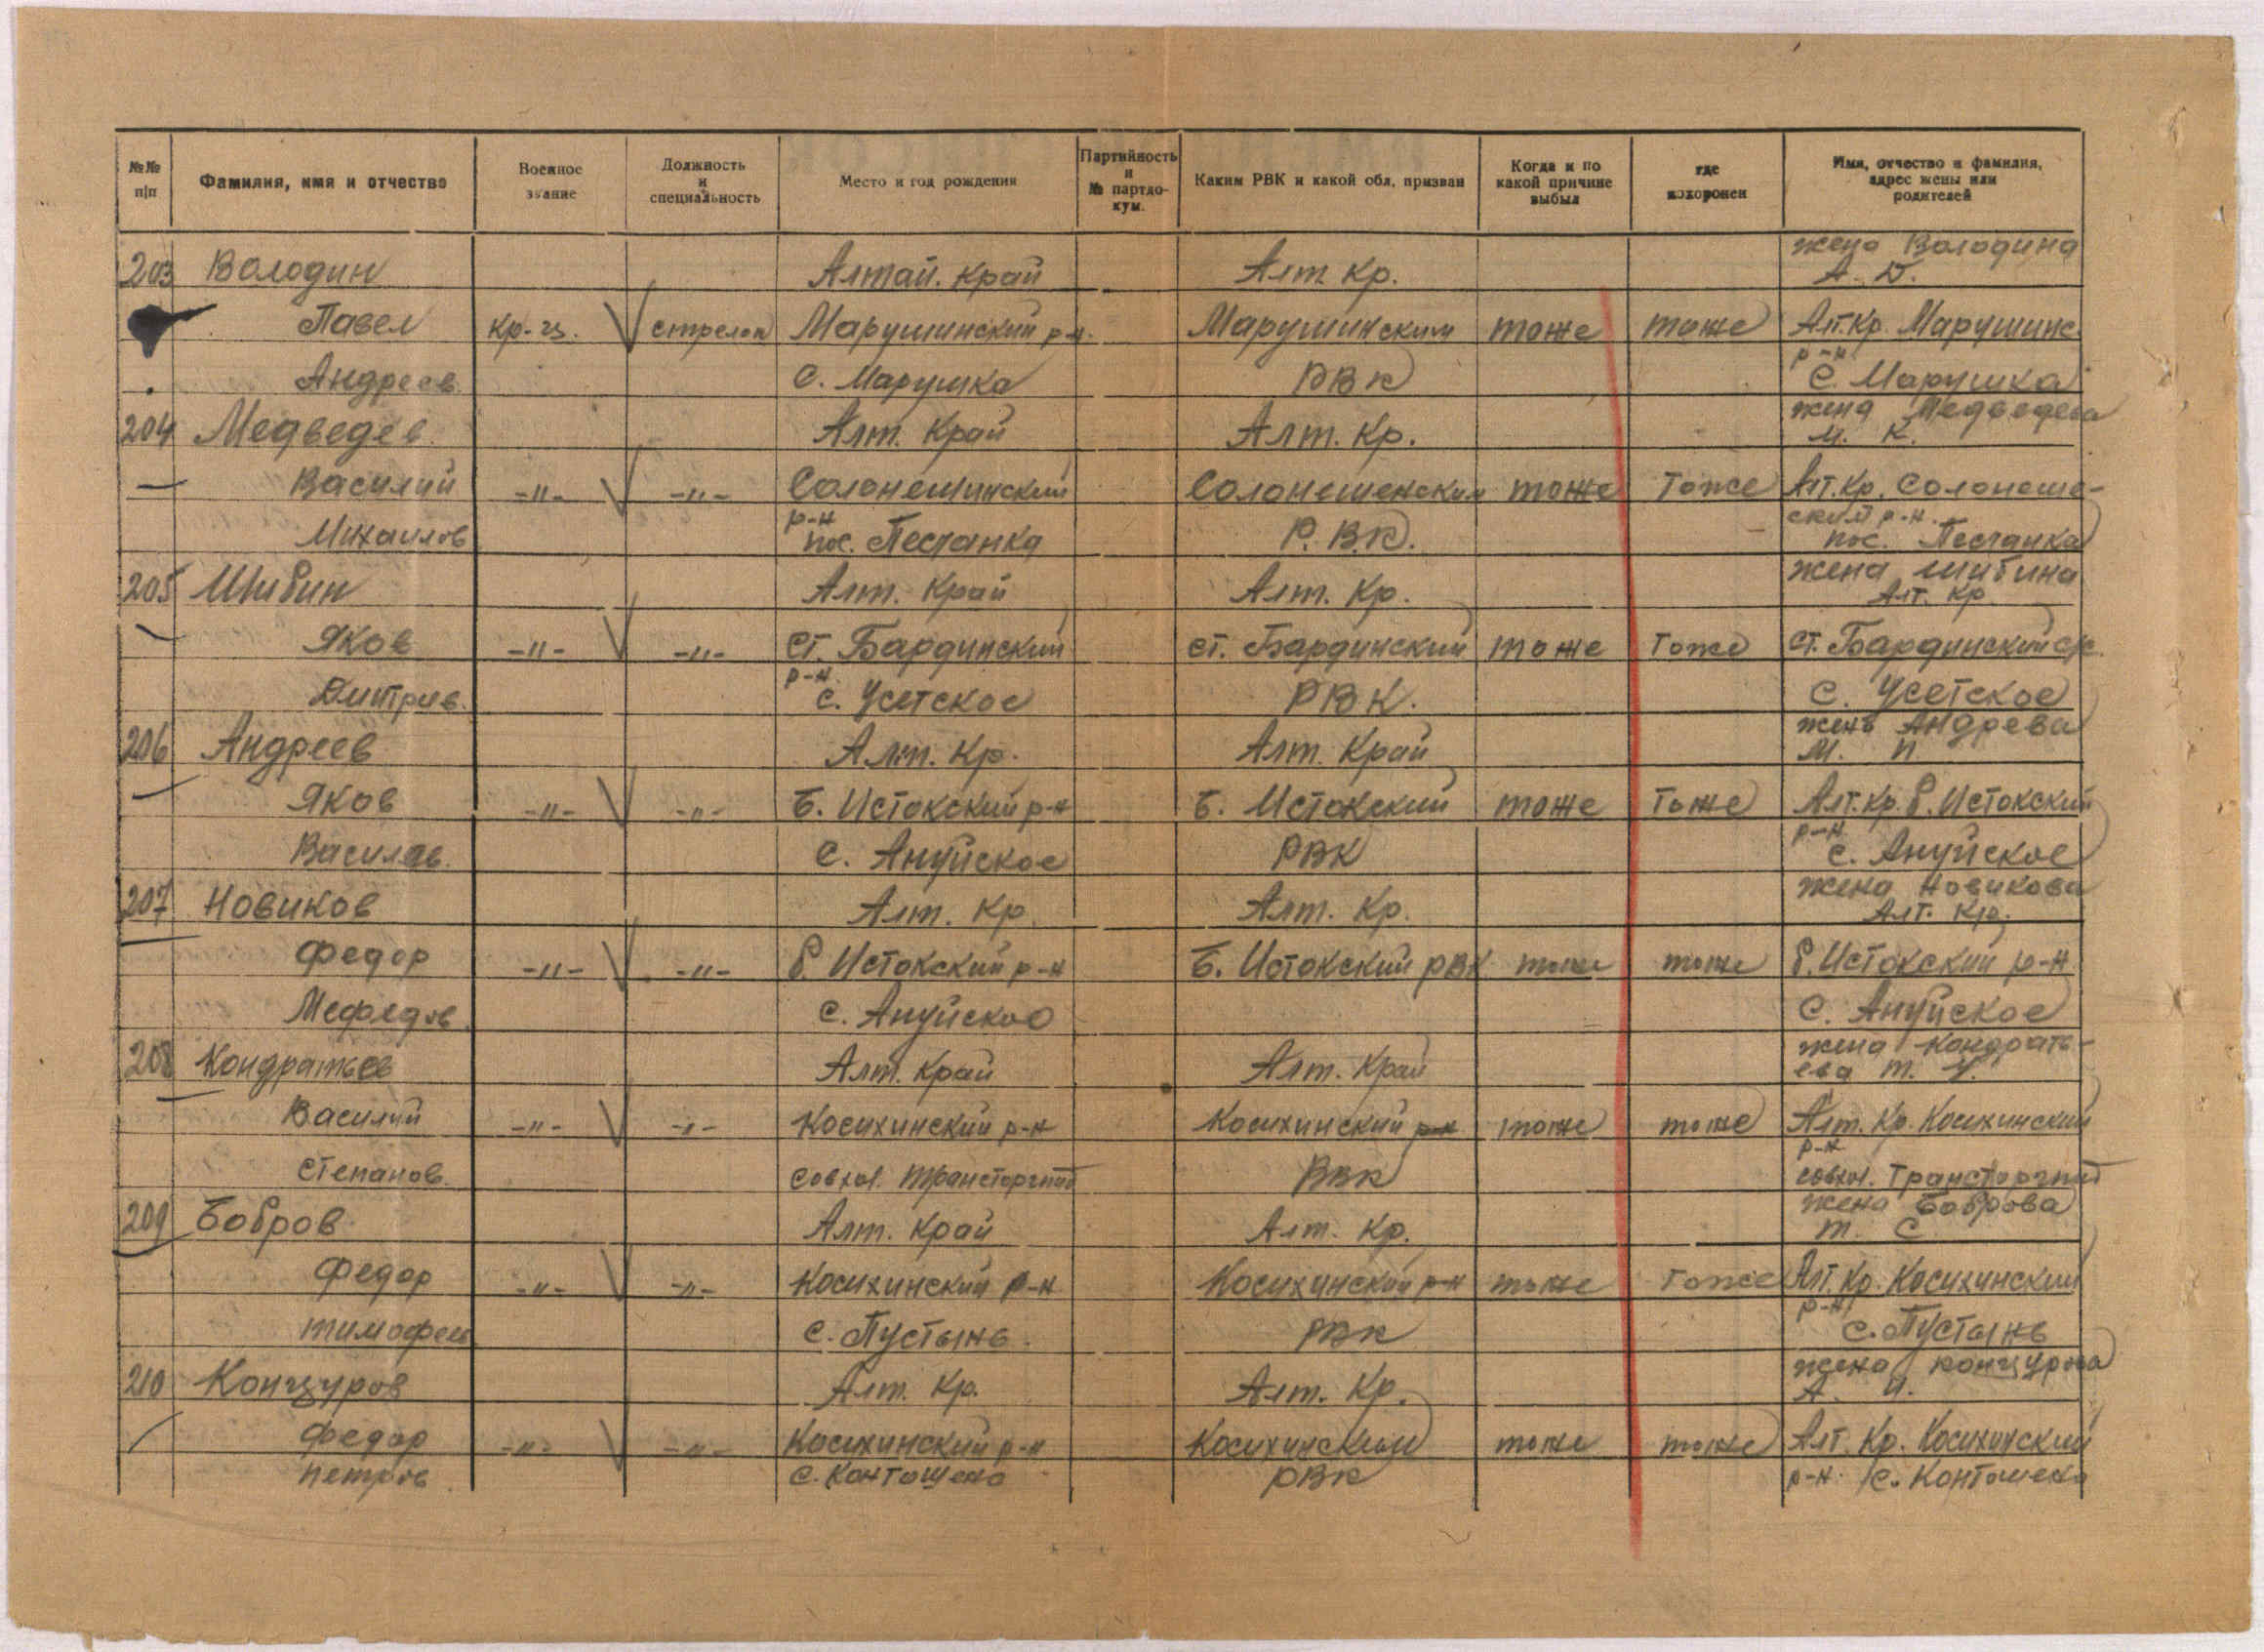 №№ п/п
Фамилия, имя и отчество
Военное звание
Должность и специальность
Место и год рождения
Партийность и № партдокум.
Каким РВК и какой обл. призван
Когда и по какой причине выбыл
где похоронен
Имя, отчество и фамилия, адрес жены или родителей
жена Володина
203 Володин Алтай. край Алт Кр. А. Д.
Павел кр-ц. стрелок Марушинский р-н. Марушинским тоже тоже Алт. Кр. Марушинс
р-н
Андреев. с. Марушка РВК с. Марушка
жена Медведева
204 Медведев Алт. Край Алт. Кр. М. К.
Василий -"- -"- Солонешинский Солонешенским тоже тоже Алт. Кр. Солонеше-
р-н ский р-н.
Михаилов пос. Песчанка Р.В.К. пос. Песчанка
жена Шибина
205 Шибин Алт. Край Алт. Кр. Алт. Кр
Яков -"- -"- Ст. Бардинский ст. Бардинский тоже тоже ст. Бардинский
р-н
Дмитрив. с. Усетское РВК. с. Усетское
жена Андрева
206 Андреев Алт. Кр. Алт. Край М. П.
Яков -"- -"- Б. Истокский р-н Б. Истокский тоже тоже Алт. Кр. Б. Истокский
р-н
Василев. с. Ануйское РВК с. Ануйское
жена Новикова
207 Новиков Алт. Кр. Алт. Кр. Алт. Кр.
Федор -"- -"- Б. Истокский р-н Б. Истокский РВК тоже тоже Б. Истокский р-н
Мефедов с. Ануйское с. Ануйское
жена Кондрать-
208 Кондратьев Алт. Край Алт. Край ева Т.
Василий -"- -"- Косихинский р-н Косихинский р-н тоже тоже Алт. Кр. Косихинский
р-н
Степанов. совхоз. РВК совхоз.
жена Боброва
209 Бобров Алт. Край Алт. Кр. Т. С.
Федор -"- -"- Косихинский р-н Косихинский р-н тоже тоже Алт. Кр. Косихинский
р-н
Тимофеев с. Пустынь. РВК с. Пустынь
жена Концурова
210 Концуров Алт. Кр. Алт. Кр. А. И.
Федор -"- -"- Косихинский р-н Косихинским тоже тоже Алт. Кр. Косихинский
Петров. с. Контошено РВК р-н. с. Контошено